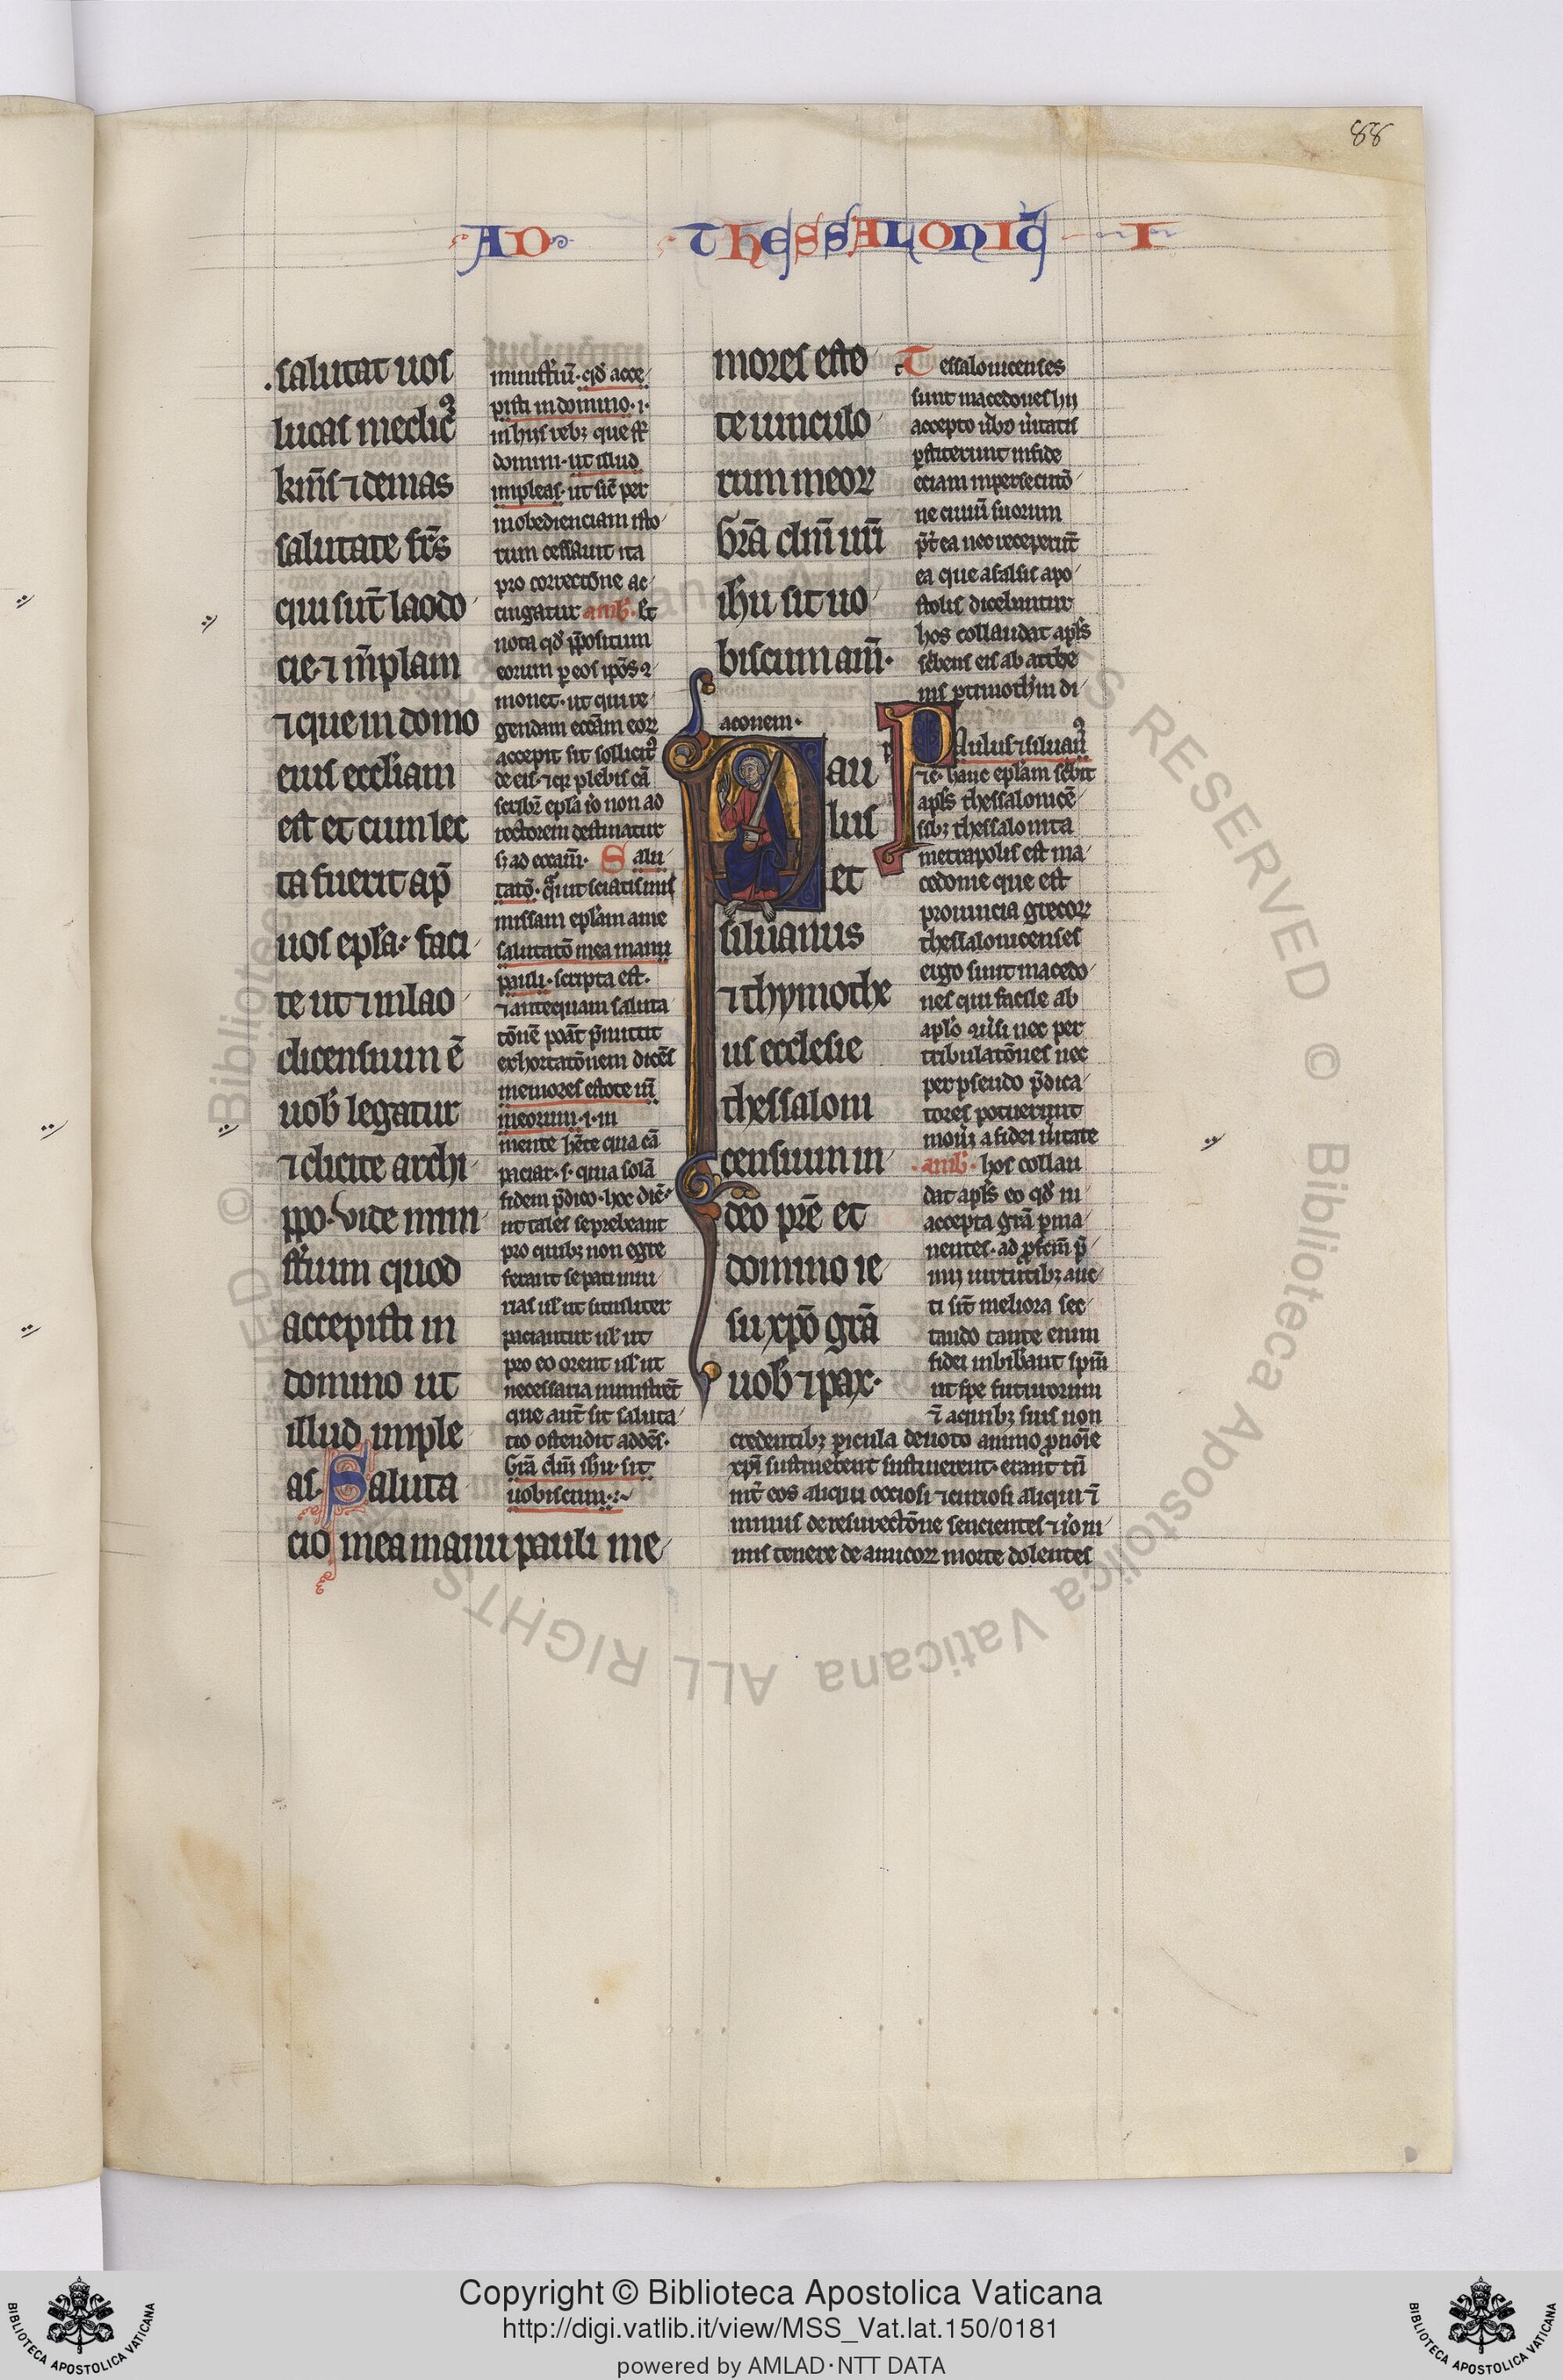 88
AD THESSALONIC̄ I
salutat uos
lucas medicꝰ
km̄s ⁊ demas
salutate fr̄s
qui sūt laodo
cie ⁊ nı̄pham
⁊ que in domo
eius eccl'iam
est et cum lec
ta fuerit ap̄
uos epl'a faci
te ut ⁊ in lao
dicensium ē
uob' legatur
⁊ dicite archi
ppo. Vide mini
st'ium quod
accepisti in
domino ut
illud imple
as. Saluta
cio mea manu pauli me
minist'iū. qd' acce
pisti in domino. i.
in hiis reb; que sūt
domini. ut illud
impleas. ut sic̄ per
inobedienciam isto
rum cessauit ita
pro correctōne ac
cingatur amb'. Et
nota qd' p̄positum
eorum p eos ipōs
monet. ut qui re
gendam ecc̄am eoꝝ
accepit sit sollicitꝰ
de eis. ⁊ qꝛ plebis cā
scribit̄ epl'a io non ad
rectorem destinatur
s; ad ecc̄am. Salu
tatō. q. d. ut sciatis uob'
missam epl'am a me
salutatō mea manu
pauli. scripta est.
⁊ antequam saluta
tōnē ponat p̄mittit
exhortatōnem dicēs
memores estote uı̄
meorum. i. in
mente h'ete qua cā
paciar. s. quia solā
fidem p̄dico. hoc dic̄
ut tales se prebeant
pro quib; non egre
ferant se pati iniu
rias ul' ut similiter
paciantur ul' ut
pro eo orent ul' ut
necessaria ministrēt
que aūt sit saluta
tio ostendit addēs.
Gr̄a dn̄i ih'u. sit
uobiscum
mores esto
te uinculo
rum meoꝝ
Gr̄a dn̄i nr̄i
ih'u sit uo
biscum am̄.
aconem.
Pau
lus
et
siluanus
⁊ thymothe
us ecclesie
thessaloni
censium in
deo pr̄e et
domino ie
su xp̄o gr̄a
uob' ⁊ pax.
Tessalonicenses
sunt macedones hii
accepto u'bo u'itatis
p̄stiterunt in fide
eciam in persecutō
ne ciuiū suorum
p̄t'ea nec receperūt
ea que a falsis apo
stolis dicebantur
hos collaudat apl's
sc'bens eis ab athe
nis p timoth'm di
Paulus ⁊ siluanꝰ
⁊c. hanc epl'am sc'bit
apl's thessalonicē
sib; thessalonica
metropolis est ma
cedonie que est
prouincia grecoꝝ
thessalonicenses
ergo sunt macedo
nes qui facile ab
apl'o u'si nec per
tribulatōnes nec
per pseudo p̄dica
tores potuerunt
mou'i a fidei u'itate
amb'. hos collau
dat apl's eo qd' in
accepta gr̄a p̄ma
nentes. ad p̄fcm̄ p̄
mij uirtutib; auc
ti sūt meliora sec
tando tante enim
fidei inhib'ant sp̄m
ut spe futurorum
ı̄ a ciuib; suis non
credentib; picula deuoto animo p noı̄e
xp̄i sustinerent sustinerent. erant tn̄
int' eos aliqui occiosi ⁊ curiosi aliqui ı̄
minus de resurrectōne sencientes ⁊ io ni
mis tenere de amicoꝝ morte dolentes
Copyright © Biblioteca Apostolica Vaticana
http://digi.vatlib.it/view/MSS_Vat.lat.150/0181
powered by AMLAD·NTT DATA
© Biblioteca Apostolica Vaticana ALL RIGHTS RESERVED
BIBLIOTECA APOSTOLICA VATICANA
BIBLIOTECA APOSTOLICA VATICANA